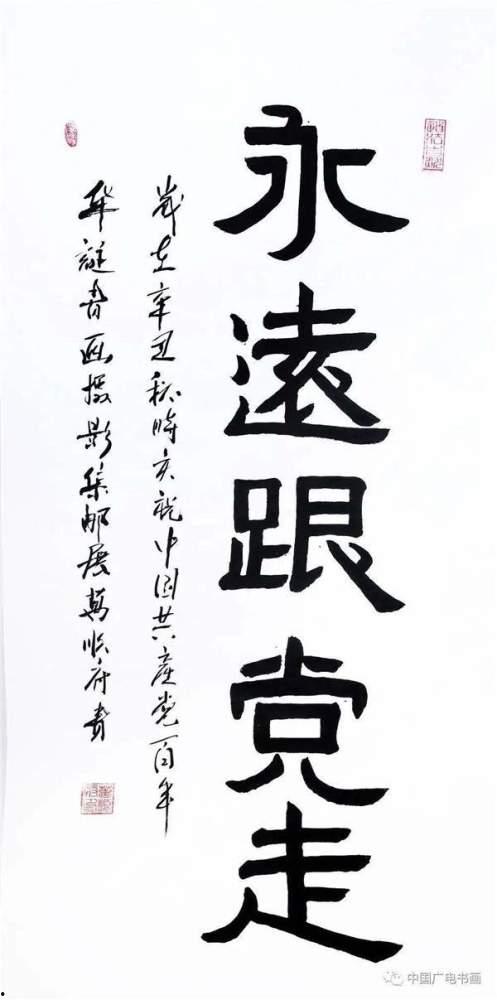 永遠跟党走
岁在辛丑秋時庆祝中国共産党百年
华诞书画摄影集邮展萬順府书
中国广电书画